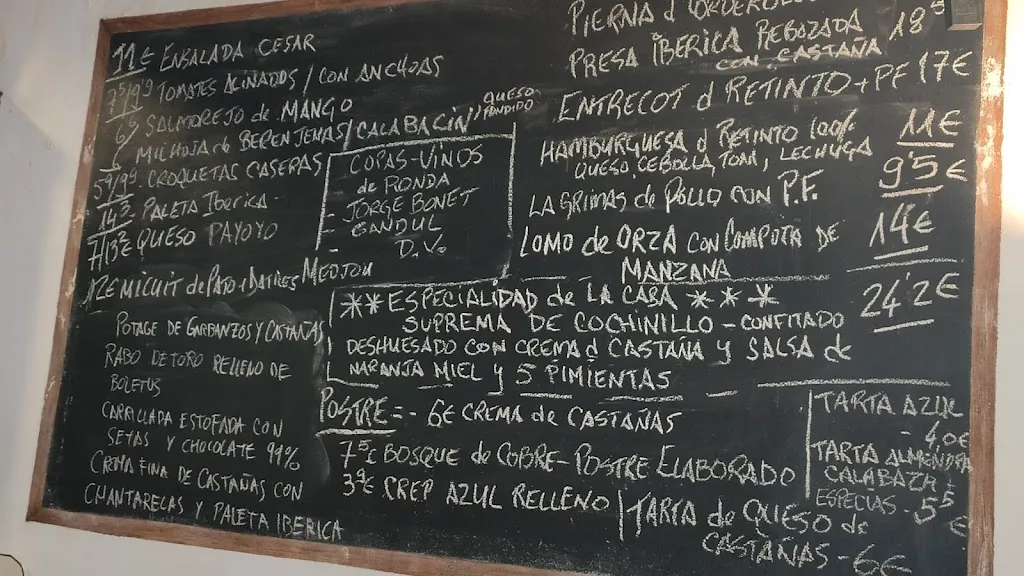 11€ ENSALADA CESAR
TOMATES ALIÑADOS / CON ANCHOAS
SALMOREJO de MANGO
MILHOJA de BERENJENAS / CALABACIN / QUESO FUNDIDO
CROQUETAS CASERAS
PALETA IBERICA
QUESO PAYOYO
12€ MICUIT de PATO + DATILES MEDJOUL
POTAGE DE GARBANZOS Y CASTAÑAS
RABO DE TORO RELLENO DE
BOLETUS
CARRILLADA ESTOFADA CON
SETAS Y CHOCOLATE 99%
CREMA FINA DE CASTAÑAS CON
CHANTARELAS Y PALETA IBERICA
COPAS-VINOS
de RONDA
- JORGE BONET
- GANDUL
- D.V.
PIERNA d
PRESA IBERICA REBOZADA 18
CON CASTAÑA
ENTRECOT d RETINTO + PF 17€
HAMBURGUESA d RETINTO 100% 11€
QUESO, CEBOLLA, TOM, LECHUGA
LAGRIMAS de POLLO CON P.F. 9'5€
LOMO de ORZA CON COMPOTA DE 14€
MANZANA
** ESPECIALIDAD de LA CASA *** 24'2€
SUPREMA DE COCHINILLO - CONFITADO
DESHUESADO CON CREMA d CASTAÑA Y SALSA de
NARANJA MIEL Y 5 PIMIENTAS
POSTRE = - 6€ CREMA de CASTAÑAS
7'5€ BOSQUE de COBRE - POSTRE ELABORADO
CREP AZUL RELLENO
TARTA de QUESO de
CASTAÑAS - 6€
TARTA AZUL
TARTA ALMENDRA
CALABAZA +
ESPECIAS - 5'5
€